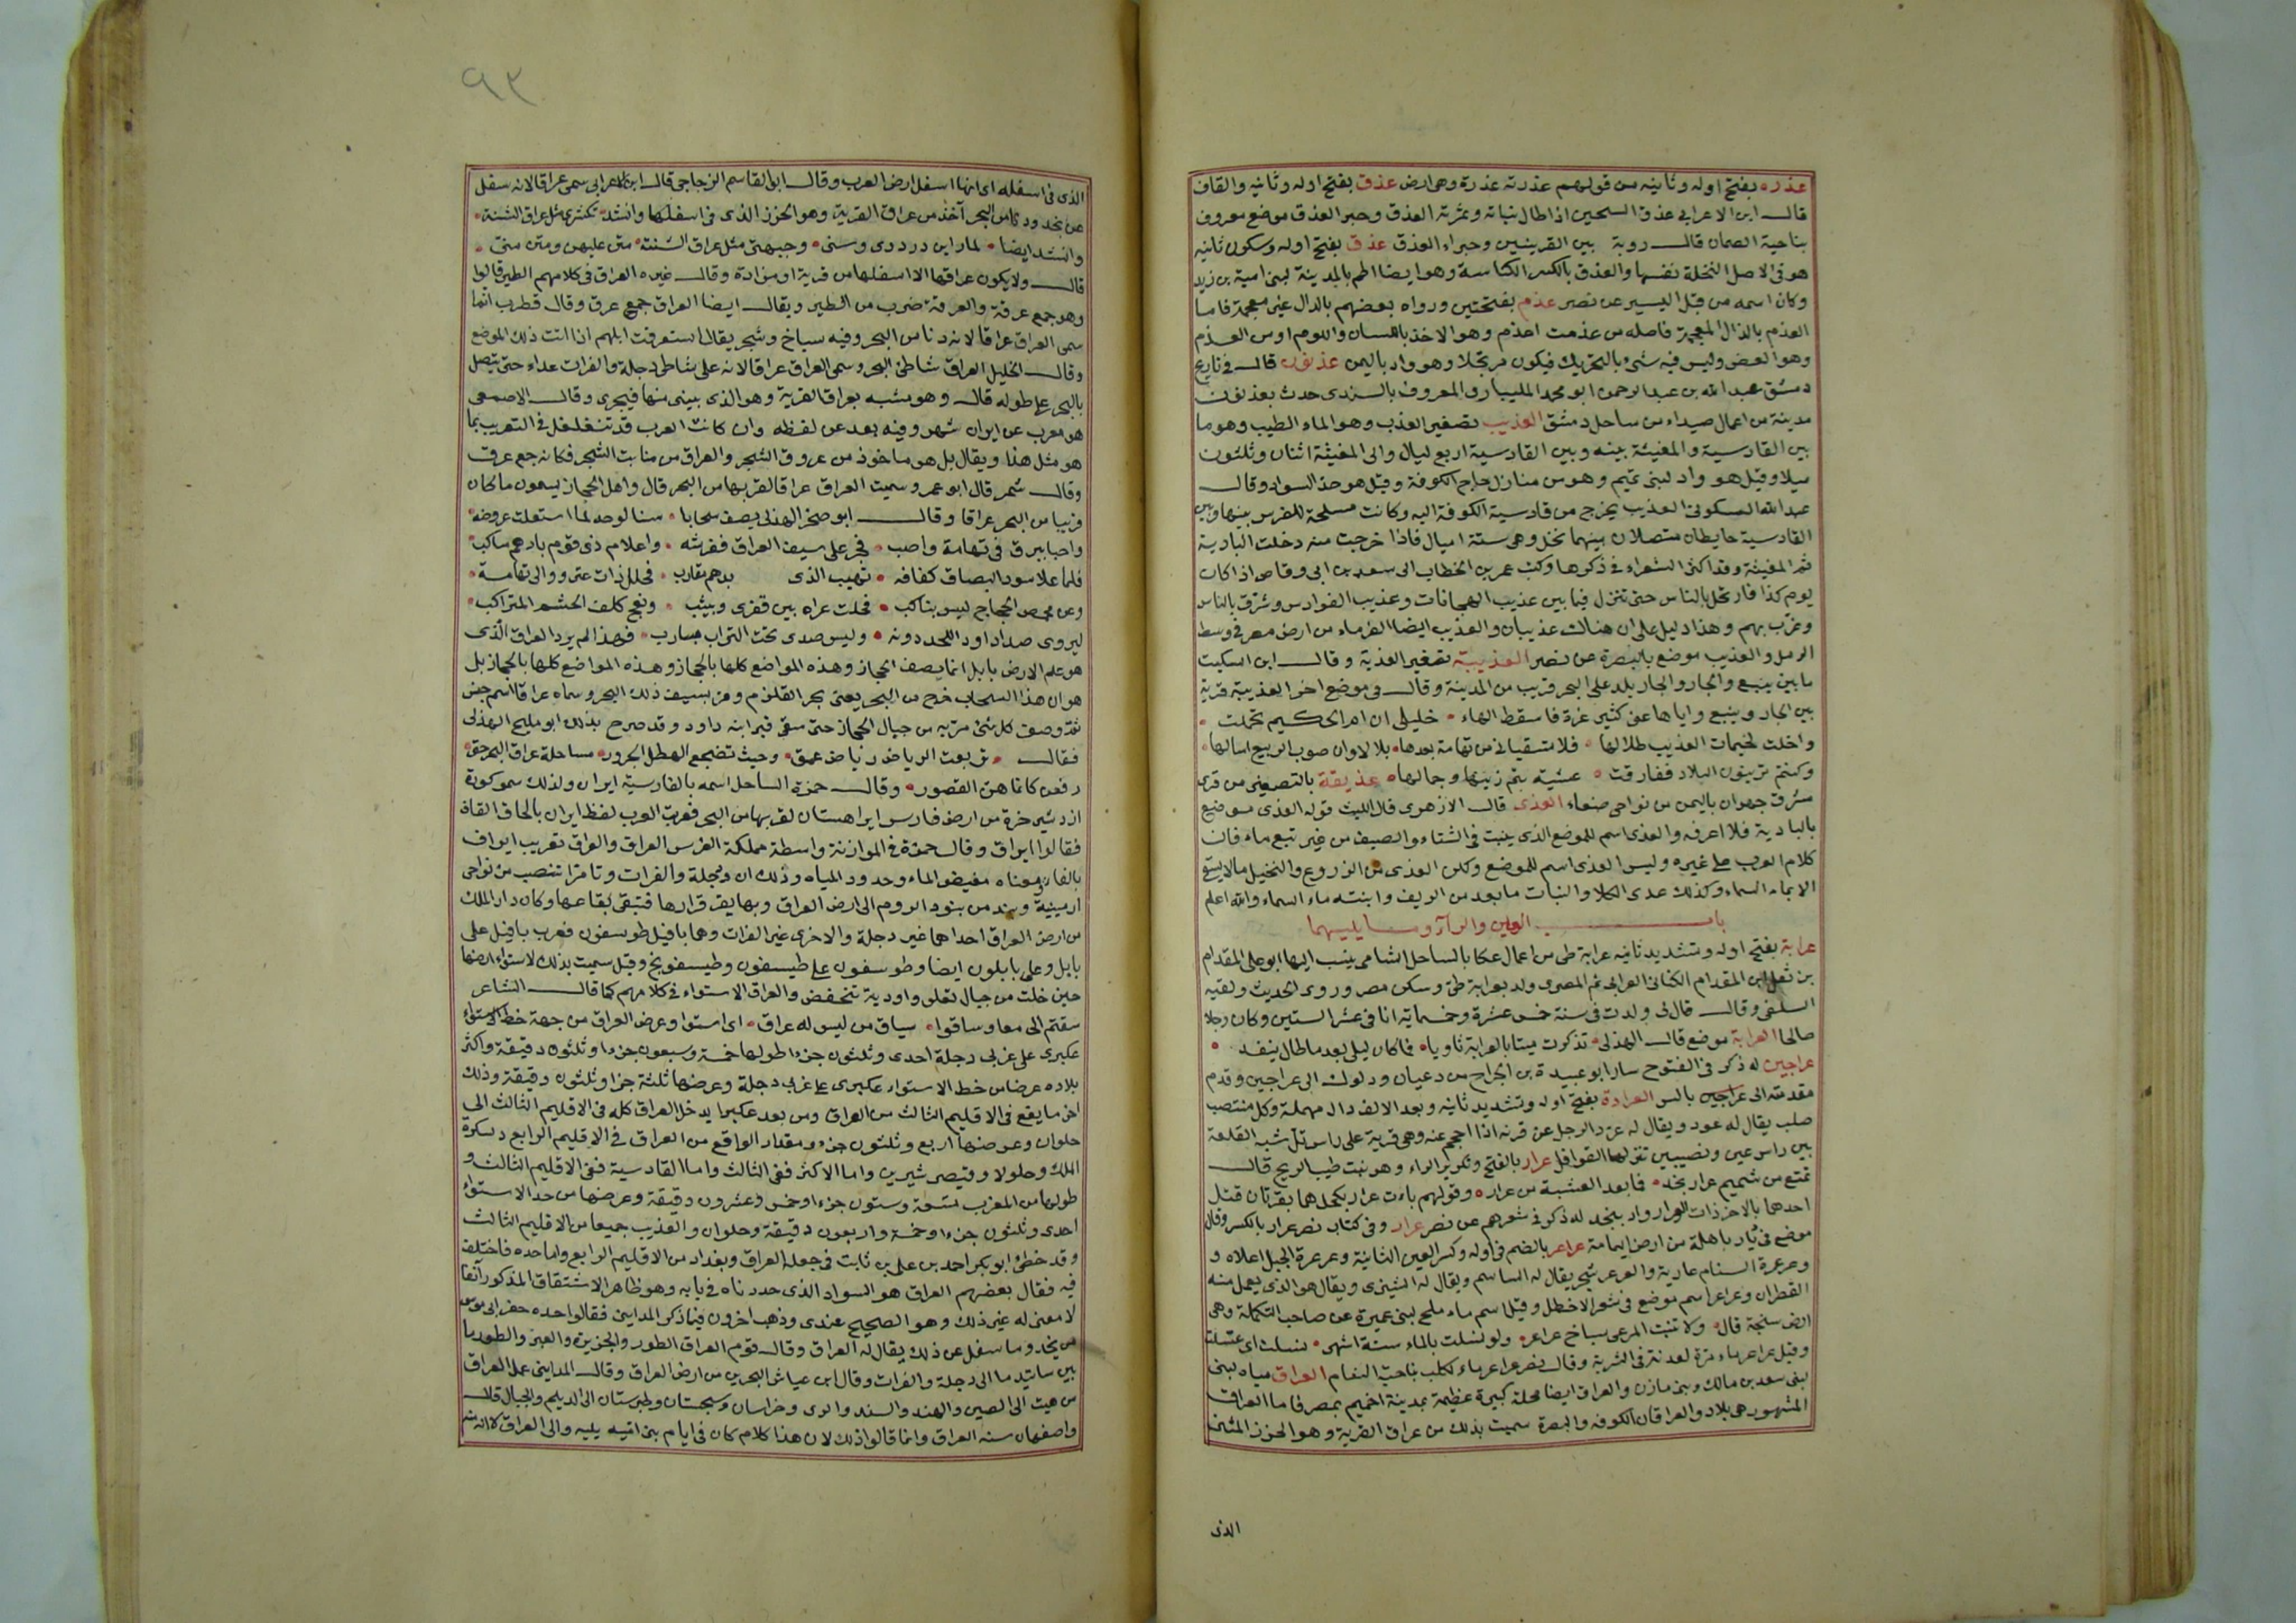 عذره بفتح اوله وثانيه من قولهم عذرته عذرة وهى ارض عذق بفتح اوله وثانيه والقاف
قال ابن الاعرابى عذق السحين اذا طال نباته وثمرته العذق وحبر العذق موضع معروف
بناحية الصمان قال روبة بين القرينين وخبراء العذق عذق بفتح اوله وسكون ثانيه
هو فى الاصل النخلة نفسها والعذق بالكسر الكناسة وهو ايضا اطم بالمدينة لبنى امية بن زيد
وكان اسمه من قبل اليسير عن نصر عذم بفتحتين ورواه بعضهم بالدال غير معجمة فاما
العذم بالذال المعجمة فاصله من عذمت اعذم وهو الاخذ باللسان واللوم اومن العذم
وهو العض وليس فيه شىء بالتحريك فيكون مرتجلا وهو واد باليمن عذنون قال فى تاريخ
دمشق عبد الله بن عبد الرحمن ابو محمد المليبارى المعروف بالسندى حدث بعذنون
مدينة من اعمال صيداء من ساحل دمشق العذيب تصغير العذب وهو الماء الطيب وهو ما
بين القادسية والمغيثة بينه وبين القادسية اربع ليال والى المغيثة اثنان وثلثون
ميلا وقيل هو واد لبنى تميم وهو من منازل حاج الكوفة وقيل هو حد السواد وقال
عبد الله السكونى العذيب يخرج من قادسية الكوفة اليه وكانت مسلحة للفرس بينها وبين
القادسية حايطان متصلان بينهما نخل وهى ستة اميال فاذا خرجت منه دخلت البادية
ثم المغيثة وقد اكثر الشعراء فى ذكرها وكتب عمر بن الخطاب الى سعد بن ابى وقاص اذا كان
يوم كذا فارتحل بالناس حتى تنزل فيما بين عذيب الهجانات وعذيب القوادس وشرق بالناس
وغرب بهم وهذا دليل على ان هناك عذيبان والعذيب ايضا الفرماء من ارض مصر فى وسط
الرمل والعذيب موضع بالبصرة عن نصر العذيبة تصغير العذبة وقال ابن السكيت
ما بين ينبع والجار والجار بلد على البحر قريب من المدينة وقال فى موضع اخر العذيبة قرية
بين الجار وينبع واياها عنى كثير عزة فاسقط الهاء خليلى ان ام الحكيم تحملت
واخلت لخيمات العذيب ظلالها فلا تسقيانى من تهامة بعدها بلالا وان صوب الربيع اسالها
وكنتم تزينون البلاد ففارقت عشية بنتم زينها وجمالها عذيقة بالتصغير من قرى
مشرق جهران باليمن من نواحى صنعاء العذى قال الازهرى قال الليث قوله العذى موضع
بالبادية فلا اعرفه والعذى اسم للموضع الذى ينبت فى الشتاء والصيف من غير نبع ماء فان
كلام العرب على غيره وليس العذى اسم للموضع ولكن العذى من الزروع والنخيل ما لا يسقى
الا بماء السماء وكذلك عذى الكلا والنبات ما بعد من الريف وابنته ماء السماء والله اعلم
باب العين والراء وما يليهما
عرابة بفتح اوله وتشديد ثانيه عرابة طى من اعمال عكا بالساحل الشامى ينسب اليها ابو على المقدام
بن ثعل ابن المقدام الكنانى العرابى ثم المصرى ولد بعرابة طى وسكن مصر وروى الحديث ولقيه
السلفى وقال قال لى ولدت فى سنة خمس عشرة وخمساية انا فى عشر الستين وكان رجلا
صالحا العرابة موضع قال الهذلى تذكرت ميتا بالعرابة ثاويا فما كان ليلى بعد ما طال ينفد
عراجين له ذكر فى الفتوح سار ابو عبيدة بن الجراح من دعيان ودلوك الى عراجين وقدم
مقدمته الى عراجين بالس العرادة بفتح اوله وتشديد ثانيه وبعد الالف دال مهملة وكل منتصب
صلب يقال له عرد ويقال له عرد الرجل عن قرنه اذا احجم عنه وهى قرية على راس تل شبه القلعة
بين راس عين ونصيبين تنزلها القوافل عرار بالفتح وتكرير الراء وهو نبت طيب الريح قال
تمتع من شميم عرار نجد فما بعد العشية من عرار وقولهم باءت عرار بكحل هما بقرتان قتل
احدهما بالاخر ذات العرار واد بنجد له ذكر فى شعرهم عن نصر عرار وفى كتاب نصر عرار بالكسر وقال
موضع فى ديار باهلة من ارض اليمامة عراعر بالضم فى اوله وكسر العين الثانية وعرعرة الجبل اعلاه و
وعرعرة السنام عاربة والعرعر شجر يقال له الساسم ويقال له الشيزى ويقال هو الذى يعمل منه
القطران وعراعر اسم موضع فى شعر الاخطل وقيل اسم ماء ملح لبنى عميرة عن صاحب التكملة وهى
ارض سبخة قال ولا تنبت المرعى سباخ عراعر ولو نسلت بالماء ستة اشهر نسلت اى غسلت
وقيل عراعر ماء مرة لعدنة فى الشربة وقال نصر عراعر ماء لكلب بناحية الشام العراق مياه لبنى
لبنى سعد بن مالك وبنى مازن والعراق ايضا محلة كبيرة عظيمة بمدينة اخميم بمصر فاما العراق
المشهور هى بلاد والعراقان الكوفه والبصرة سميت بذلك من عراق القربة وهو الخرز المثنى
الذى
٩٣
الذى فى اسفله اى انها اسفل ارض العرب وقال ابو القاسم الزجاجى قال ابن الاعرابى سمى عراقا لانه سفل
عن نجد ودنا من البحر آخذ من عراق القربة وهو الخرز الذى فى اسفلها وانشد تكشرى مثل عراق الشنة
وانشد ايضا لما راين دردرى وسنى وجبهتى مثل عراق الشنة متن عليهن ومتن منى
قال ولا يكون عراقها الا اسفلها من قربة او مزادة وقال غيره العراق فى كلامهم الطير قالوا
وهو جمع عرقة والعرقة ضرب من الطير ويقال ايضا العراق جمع عرق وقال قطرب انما
سمى العراق عراقا لانه دنا من البحر وفيه سباخ وشجر يقال استعرقت ابلهم اذا اتت ذلك الموضع
وقال الخليل العراق شاطئ البحر وسمى العراق عراقا لانه على شاطى دجلة والفرات عداء حتى يتصل
بالبحر على طوله قال وهو مشبه بعراق القربة وهو الذى يبنى منها فيجرى وقال الاصمعى
هو معرب عن ايران شهر وفيه بعد عن لفظه وان كانت العرب قد تتغلغل فى التعريب بما
هو مثل هذا ويقال بل هو ماخوذ من عروق الشجر والعراق من منابت الشجر فكانه جمع عرق
وقال شمر قال ابو عمرو سميت العراق عراقا لقربها من البحر قال واهل الحجاز يسمون ما كان
قريبا من البحر عراقا وقال ابو صخر الهذلى يصف سحابا سنا لوحد لما استعلت عروضه
واحيا ببرق فى تهامة واصب فجر على سيف العراق ففرشه واعلام ذى قوم بادهم ساكب
فلما علا سود البصاق كفافه تهيب الذى بدهم تقارب فجلل ذات عتر ووالى تهامة
وعن مخمص الحجاج ليس بناكب فحلت عراه بين قفرى وبيثب وبعج كلف الحشم المتراكب
ليروى صدا داود اللحد دونه وليس صدى تحت التراب بشارب فهذا لم يرد العراق الذى
هو علم الارض بابل انما يصف الحجاز وهذه المواضع كلها بالحجاز وهذه المواضع كلها بالحجاز بل
هو ان هذا السحاب خرج من البحر يعنى بحر القلزم ومر بسيف ذلك البحر وسماه عراقا اسم جنس
ثم وصف كل شىء مر به من جبال الحجاز حتى سقى قبر ابنه داود وقد صرح بذلك ابو مليح الهذلى
فقال تربعت الرياض رياض عمق وحيث تضجع الهطل الجرور مساحلة عراق البحر حتى
رفعن كانما هن القصور وقال حمزة الساحل اسمه بالفارسية ايران ولذلك سمو كورة
اردشير خرة من ارض فارس ايراهستان لقربها من البحر فعربت العرب لفظ ايران بالحاق القاف
فقالوا ايراق وقال حمزة فى الموازنة واسطة مملكة الفرس العراق والعراق تعريب ايراف
بالفاء ومعناه مغيض الماء وحدود المياه وذلك ان دجلة والفرات وتامرا تنصب من نواحى
ارمينية وبند من بنود الروم الى ارض العراق وبها يقر قرارها فتبقى بقاعها وكان دار الملك
من ارض العراق احداهما غير دجلة والاخرى غير الفرات وهما بافيل طوسفون فعرب بافيل على
بابل وعلى بابلون ايضا وطوسفون على طيسفون وطيسفونج وقيل سميت بذلك لاستواء ارضها
حين خلت من جبال تعلى واودية تنخفض والعراق الاستواء فى كلامهم كما قال الشاعر
سقتم الى معا وساقوا سياق من ليس له عراق اى استوا وعرض العراق من جهة خط الاستواء
عكبرى على غربى دجلة احدى وثلثون جزءا طولها خمسة وسبعون جزءا وثلثون دقيقة واكثر
بلاده عرضا من خط الاستواء عكبرى على غربى دجلة وعرضها ثلثة جزا وثلثون دقيقة وذلك
اخر ما يقع فى الاقليم الثالث من العراق ومن بعد عكبرا يدخل العراق كله فى الاقليم الثالث الى
حلوان وعرضها اربع وثلثون جزء ومقدار الواقع من العراق فى الاقليم الرابع دسكرة
الملك وجلولا وقيصر شيرين واما الاكثر ففى الثالث واما القادسية ففى الاقليم الثالث و
طولها من المغرب تسعة وستون جزءا وخمس وعشرون دقيقة وعرضها من حد الاستواء
احدى وثلثون جزءا وخمسة واربعون دقيقة وحلوان والعذيب جميعا من الاقليم الثالث
وقد خطئ ابو بكر احمد بن على بن ثابت فى جعله العراق وبغداد من الاقليم الرابع واما حده فاختلف
فيه فقال بعضهم العراق هو السواد الذى حددناه فى بابه وهو ظاهر الاشتقاق المذكور آنفا
لا معنى له غير ذلك وهو الصحيح عندى وذهب اخرون فيما ذكر المدائنى فقالوا حده حفر ابى موسى
من نجد وما سفل عن ذلك يقال له العراق وقال قوم العراق الطور والجزيرة والعبر والطور ما
بين ساتيدما الى دجلة والفرات وقال ابن عياش البحرين من ارض العراق وقال المداينى عمل العراق
من هيت الى الصين والهند والسند والرى وخراسان وسجستان وطبرستان الى الديلم والجبال قال
واصفهان سنه العراق وانما قالوا ذلك لان هذا كلام كان فى ايام بنى اميه يليه والى العراق لا انه منه